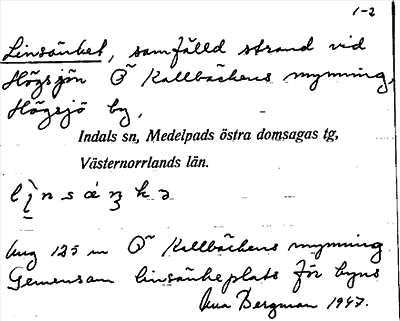 1-2
Linsänket, samfälld strand vid
Högsjön Ö~ Kallbäckens mynning,
Högsjö by,
Indals sn, Medelpads östra domsagas tg,
Västernorrlands län.
Aug 125 m Ö~ Kallbäckens mynning
Gemensam linsänkeplats för byns
Bergman 1947.